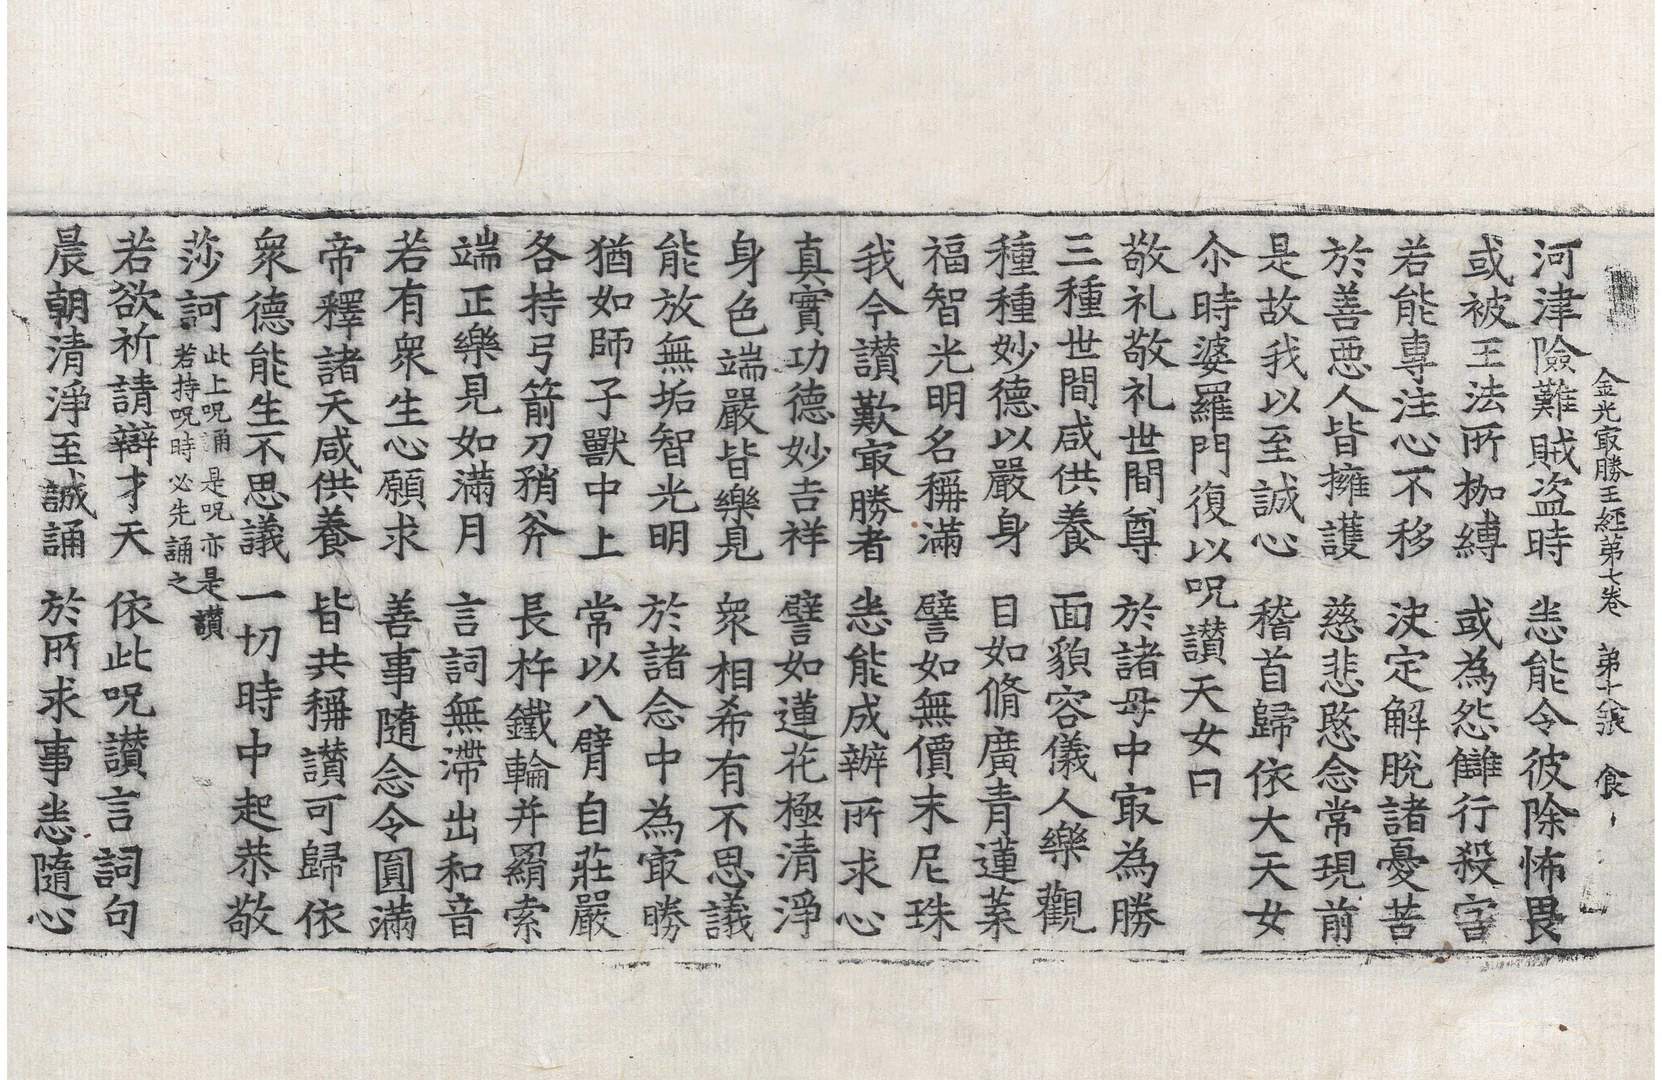 金光㝡勝王經第七卷　第十八張　食
河津險難賊盗時　恙能令彼除怖畏
或被王法所枷縛　或為怨讎行殺害
若能專注心不移　決定解脫諸憂苦
於善惡人皆擁護　慈悲愍念常現前
是故我以至誠心　稽首歸依大天女
尒時婆羅門復以呪讃天女曰
敬礼敬礼世間尊　於諸母中㝡為勝
三種世間咸供養　面貌容儀人樂觀
種種妙德以嚴身　目如脩廣青蓮葉
福智光明名稱滿　譬如無價末尼珠
我今讃歎㝡勝者　悉能成辦所求心
真實功德妙吉祥　譬如蓮花極清淨
身色端嚴皆樂見　衆相希有不思議
能放無垢智光明　於諸念中為㝡勝
猶如師子獸中上　常以八臂自莊嚴
各持弓箭刀矟斧　長杵鐵輪并羂索
端正樂見如滿月　言詞無滯出和音
若有衆生心願求　善事隨念令圓滿
帝釋諸天咸供養　皆共稱讃可歸依
衆德能生不思議　一切時中起恭敬
莎訶 此上呪誦是呪亦是讃
若持呪時必先誦之
若欲祈請辯才天　依此呪讃言詞句
晨朝清淨至誠誦　於所求事悉隨心